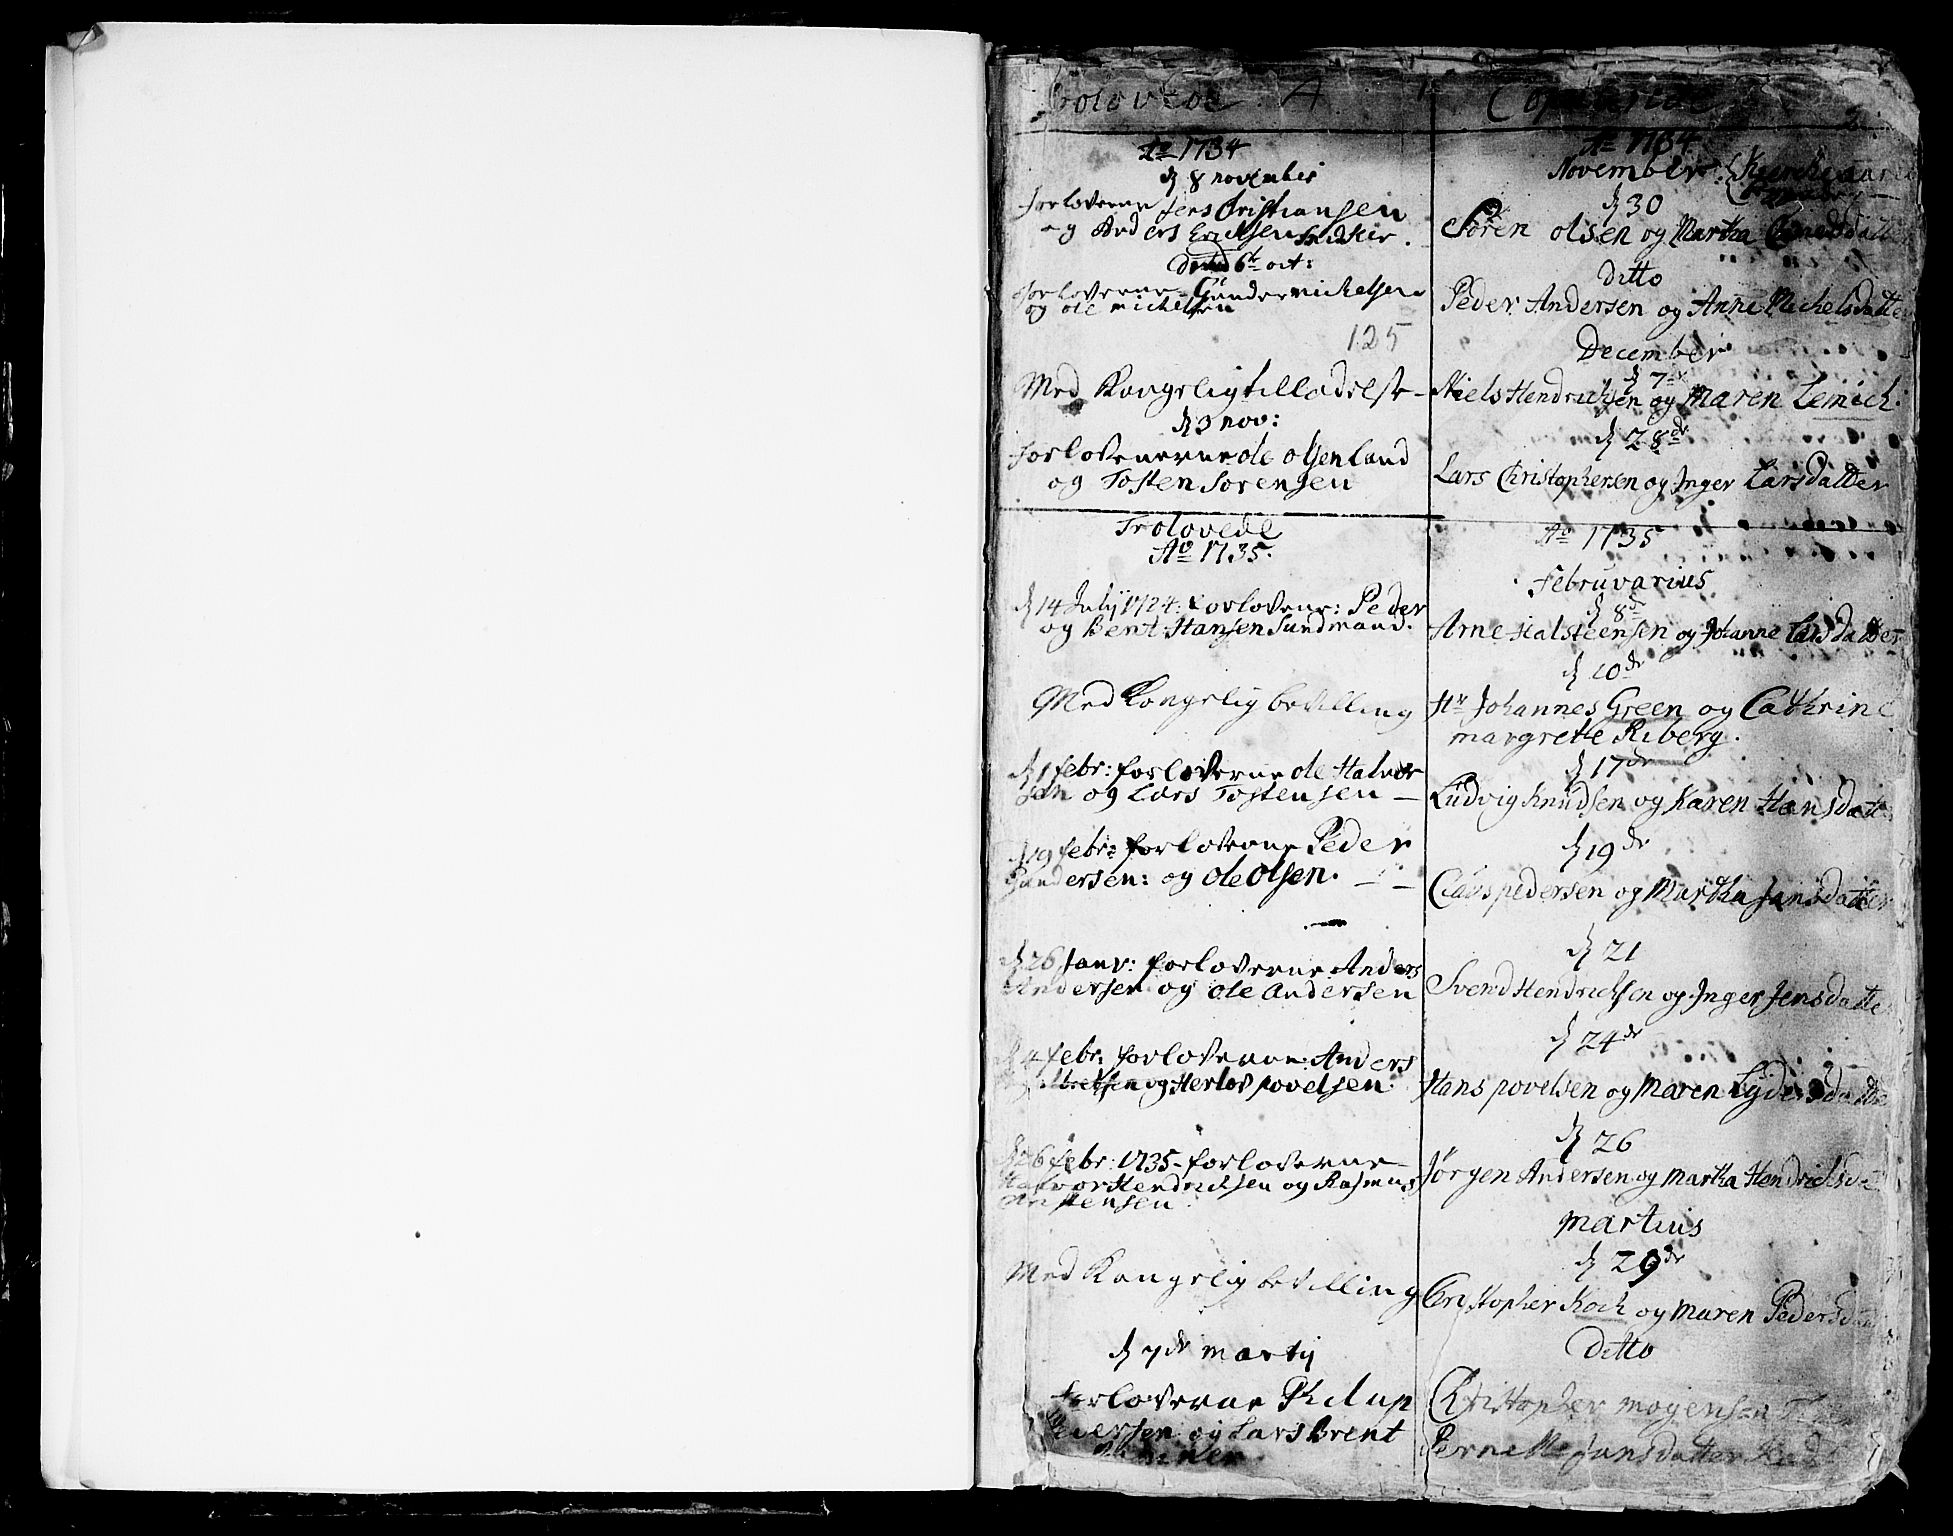 Trolovede
A
Copulerede
Ao 1734
d 8 november
forloverne Jens Cristiansen
og Anders Ericksen Snedker.
6te oct:
forloverne Gunder michelsen
og ole michelsen
125
Med Kongelig tilladelse
d 3 nov:
forloverne ole olsen land
og Tosten Sorensen
Trolovede
Ao 1735.
d 14 Julij 1724: forlovere: Peder
og Bent Hansen Sundmand.
Med Kongelig bevilling
d 1 febr: forloverne ole Halvor
sen og Lars Tostensen
d 19 febr: forloverne Peder
Gundersen: og ole olsen.
d 26 Janv: forloverne Anders
Andersen og ole andersen
d 4 febr: forloverne Anders
og Herlov povelsen
d 26 febr: 1735 forloverne
Halvor Hendrichsen og Rasmus
Med Kongelig bevilling
d 7de martij
forloverne Philip
Pedersen og Lars Brent
Ao 1734
November
d 30
Sören olsen og Martha
ditto
Peder Andersen og Anne Michelsdatter
December
d 7
Niels Hendrichsen og Maren Lemich.
d 28de
Lars Christophersen og Inger Larsdatter
Ao 1735
Februvarius
d 8de
Arne Halsteensen og Johanne Larsdatter
d 10de
Hr Johannes Green og Cathrine
margrette Riberg.
d 17de
Ludvig Knudsen og Karen Hansdatter
d 19de
Claus pedersen og Martha Jansdatter
d 21
Svend Hendrichsen og Inger Jensdatter
d 24de
Hans povelsen og Maren Lydersdatter
d 26
Jörgen Andersen og Martha Hendrichsd
Martius
d 29de
Christopher Koch og Maren Pedersd
Ditto
Christopher mogensen
Pernille Jansdatter